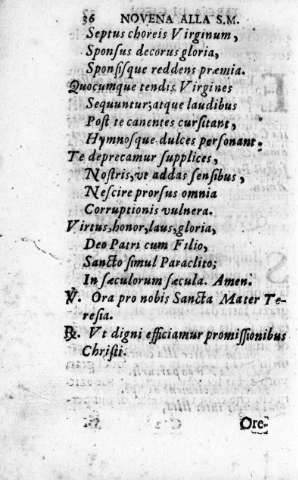 36 NOVENA ALLA S.M.
Septus choreis Virginum,
Sponsus decorus gloria,
Sponsisque reddens præmia.
Quocumque tendis Virgines
Sequuntur, atque laudibus
Post te canentes cursitant,
Hymnosque dulces personant.
Te deprecamur supplices,
Nostris, ut addas sensibus,
Nescire prorsus omnia
Corruptionis vulnera.
Virtus, honor, laus, gloria,
Deo Patri cum Filio,
Sancto simul Paraclito;
In sæculorum sæcula. Amen.
℣. Ora pro nobis Sancta Mater Te-
resia.
℟. Vt digni efficiamur promissionibus
Christi.
Ore-